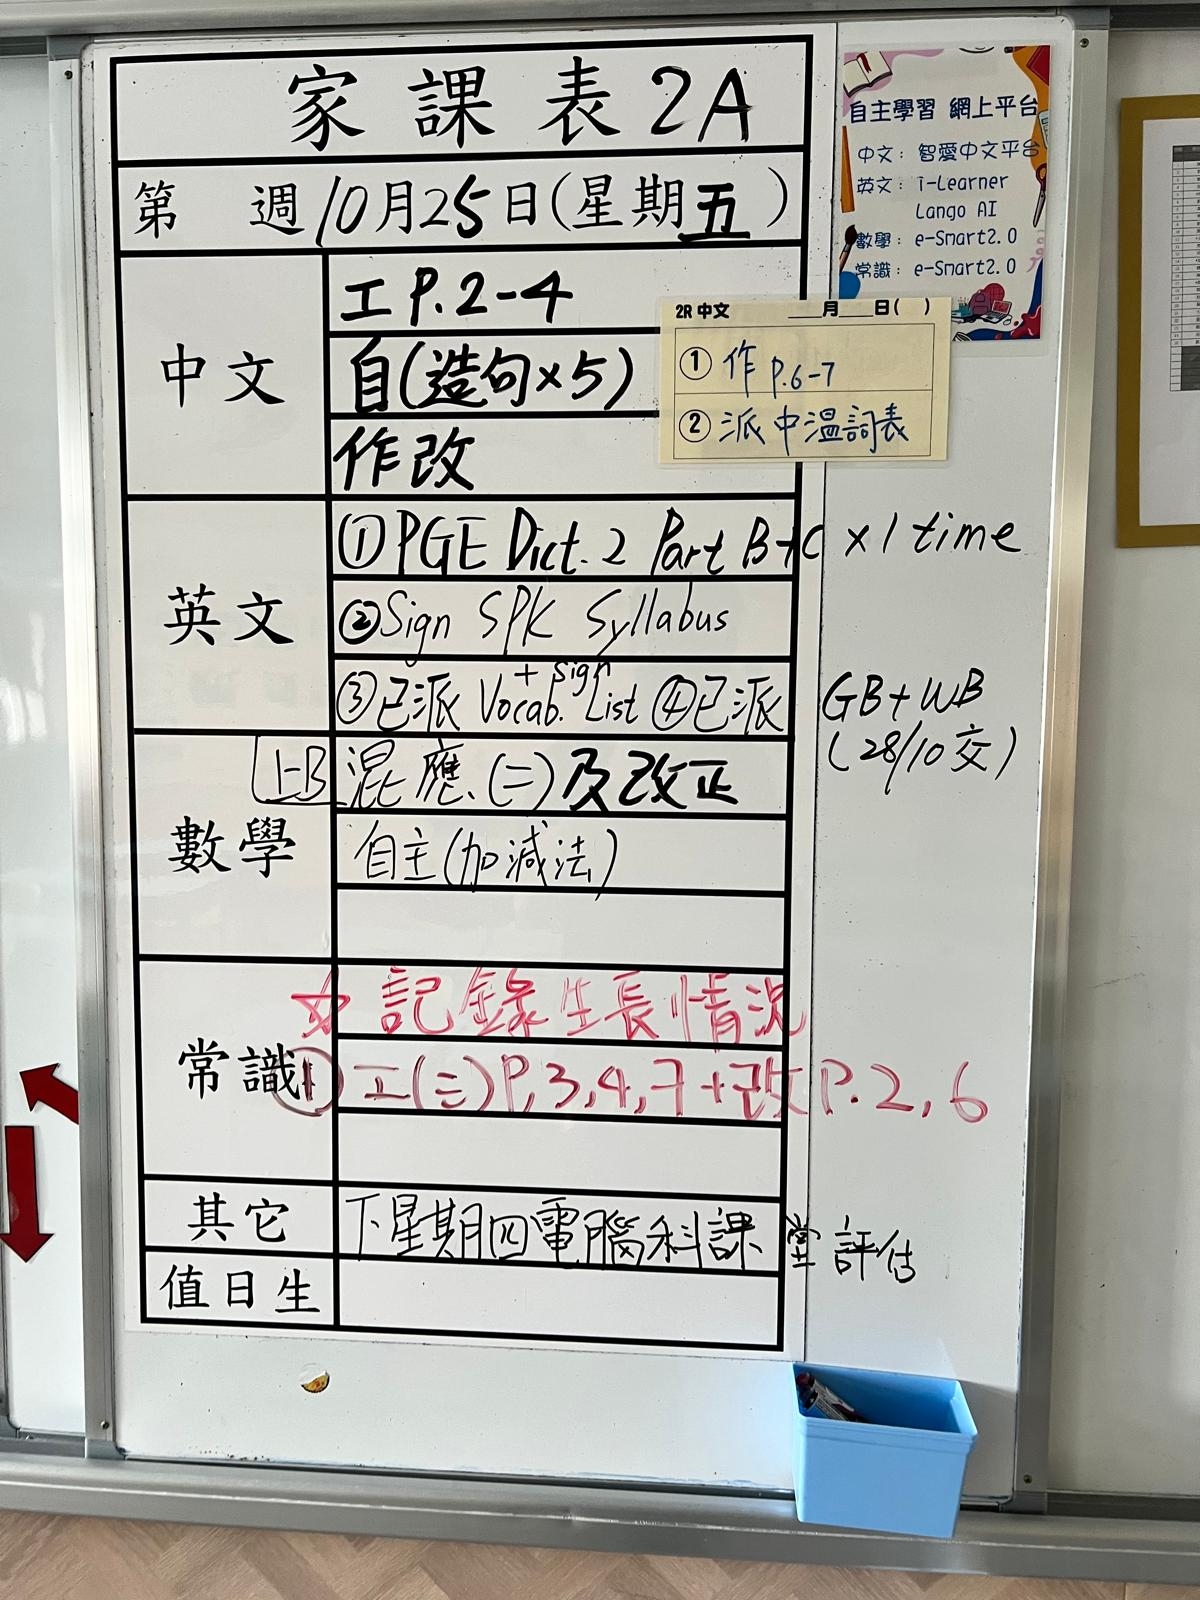 家課表 2A
第 週 10月25日(星期五)
中文
工 P.2-4
自(造句×5)
作改
英文
① PGE Dict. 2 Part B+C ×1 time
② Sign SPK Syllabus
+ sign
③ 已派 Vocab. List ④ 已派 GB+WB
(28/10交)
數學
上B 混應(二)及改正
自主(加減法)
常識
☆ 記錄生長情況
① 工(三)P,3,4,7+改P.2,6
其它
下星期四電腦科課堂評估
值日生
自主學習 網上平台
中文: 智愛中文平台
英文: i-Learner
Lango AI
數學: e-Smart2.0
常識: e-Smart2.0
2R 中文 ___月___日( )
① 作 P.6-7
② 派中溫詞表